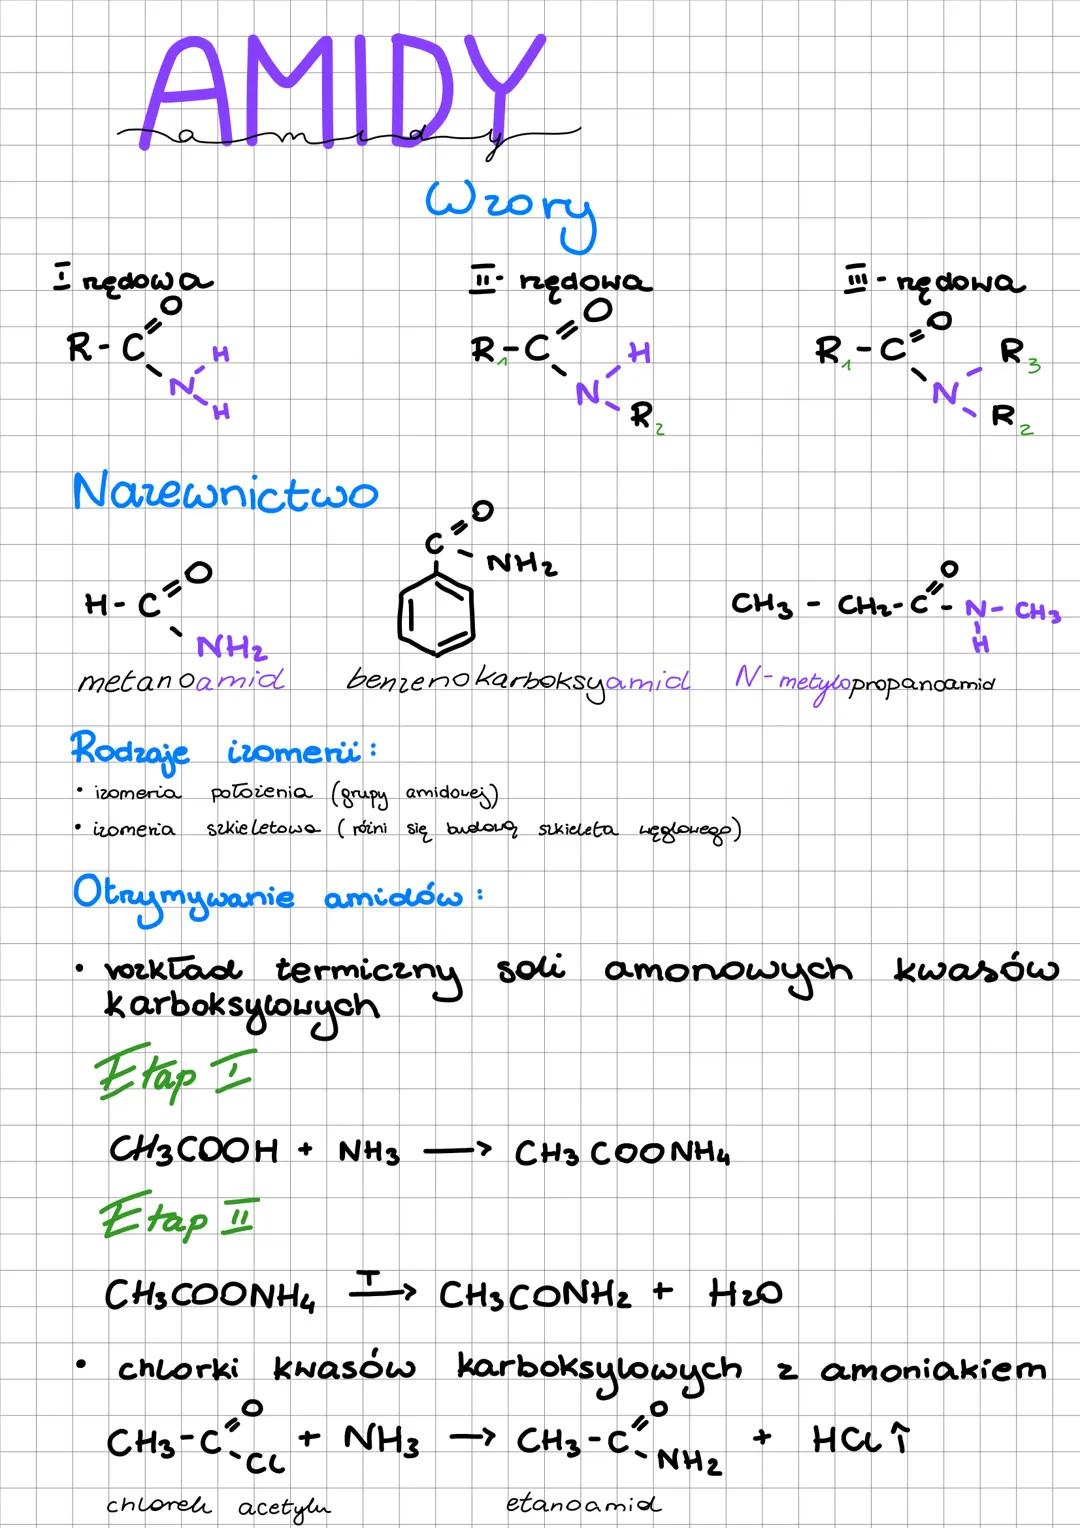 AMIDY
amidy
Wzory
I rzędowa II- rzędowa III - rzędowa
R-C=O N-H H
R1-C=O N-H R2
R1-C=O N-R3 R2
Nazewnictwo
H-C=O NH2
C=O NH2
CH3 - CH2-C=O - N- CH3 H
metanoamid benzenokarboksyamid N-metylopropanoamid
Rodzaje izomerii:
• izomeria położenia (grupy amidowej)
• izomeria szkieletowa (różni się budową szkieleta węglowego)
Otrzymywanie amidów:
• rozkład termiczny soli amonowych kwasów
karboksylowych
Etap I
CH3COOH + NH3 → CH3COONH4
Etap II
CH3COONH4 T→ CH3CONH2 + H2O
• chlorki kwasów karboksylowych z amoniakiem
CH3-C=O Cl + NH3 → CH3-C=O NH2 + HCl ↑
chlorek acetylu etanoamid